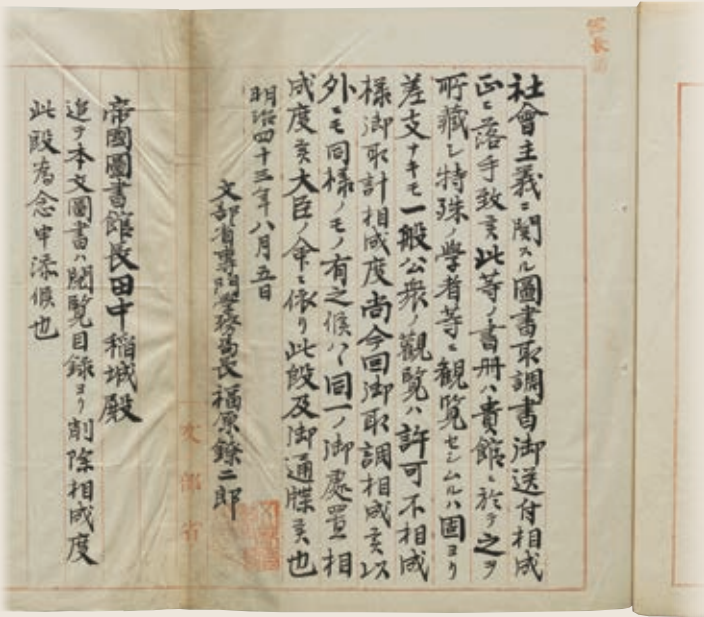 社會主義ニ関スル圖書取調書御送付相成
正ニ落手致候此等ノ書冊ハ貴館ニ於テ之ヲ
所藏シ特殊ノ学者等ニ観覧セシムルハ固ヨリ
差支ナキモ一般公衆ノ観覧ハ許可不相成
様御取計相成度尚今回御取調相成候以
外ニモ同様ノモノ有之候ハヾ同一ノ御處置相
成度候大臣ノ命ニ依リ此段及御通牒候也
明治四十三年八月五日
文部省専門学務局長福原鐐二郎
帝國圖書館長田中稲城殿
追テ本文圖書ハ閲覧目録ヨリ削除相成度
此段為念申添候也
文部省